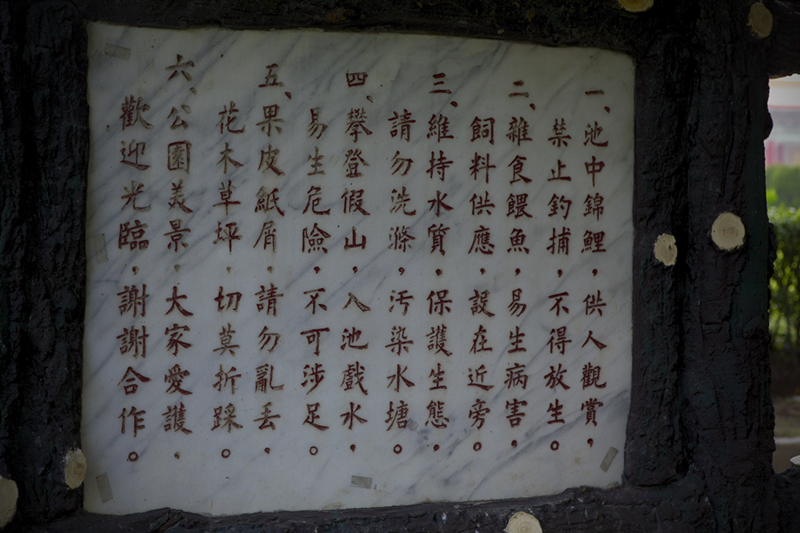 一、池中錦鯉，供人觀賞，
禁止釣捕，不得放生。
二、雜食餵魚，易生病害，
飼料供應，設在近旁。
三、維持水質，保護生態，
請勿洗滌，污染水塘。
四、攀登假山，入池戲水，
易生危險，不可涉足。
五、果皮紙屑，請勿亂丟，
花木草坪，切莫折踩。
六、公園美景，大家愛護，
歡迎光臨，謝謝合作。